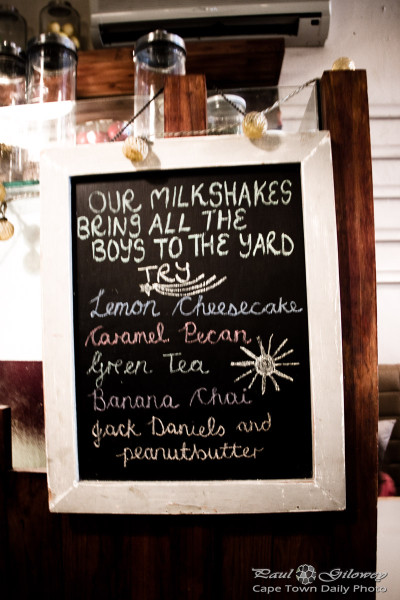 OUR MILKSHAKES
BRING ALL THE
BOYS TO THE YARD
TRY
Lemon Cheesecake
Caramel Pecan
Green Tea
Banana Chai
Jack Daniels and
peanutbutter
Paul Gilowey
Cape Town Daily Photo